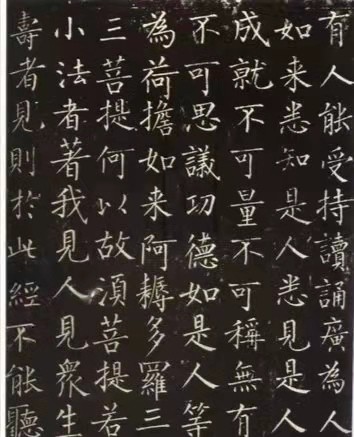 有人能受持讀誦廣為人
如来悉知是人悉見是人
成就不可量不可稱無有
不可思議功德如是人等
為荷擔如来阿耨多羅三
三菩提何以故湏菩提若
小法者著我見人見衆生
壽者見則於此經不能聽